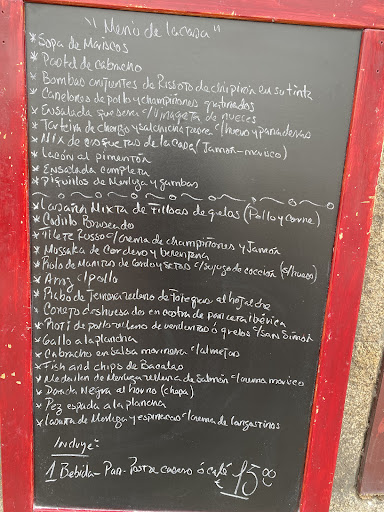 "Menú de la casa"
* Sopa de Mariscos
* Pastel de cabracho
* Bombas crujientes de Rissoto de chipirón en su tinta
* Canelones de pollo y champiñones gratinados
* Ensalada queso c/vinagreta de nueces
* Tartera de chorizo y salchicha c/huevo y panaderas
* Mix de croquetas de la casa (Jamón-marisco)
* Lacón al pimentón
* Ensalada completa
* Piquillos de Merluza y gambas
* Lasaña Mixta de Filloas de grelos (Pollo y carne)
* Codillo Braseado
* Filete Russo c/crema de champiñones y Jamón
* Mussaka de Cordero y berenjena
* de Manitas de Cerdo y setas c/su jugo de cocción (s/hueso)
* Arroz c/pollo
* de Ternera relleno de
* Conejo deshuesado en costra de panceta ibérica
* de pollo relleno de verduras ó grelos c/San Simón
* Gallo a la plancha
* Cabracho en salsa marinera c/almejas
* Fish and chips de Bacalao
* Medallón de Merluza rellena de Salmón c/crema marisco
* Dorada Negra al horno (chopa)
* Pez espada a la plancha
* de Merluza y espinacas c/crema de langostinos
Incluye:
1 Bebida - Pan - Postre casero ó café € 15.00